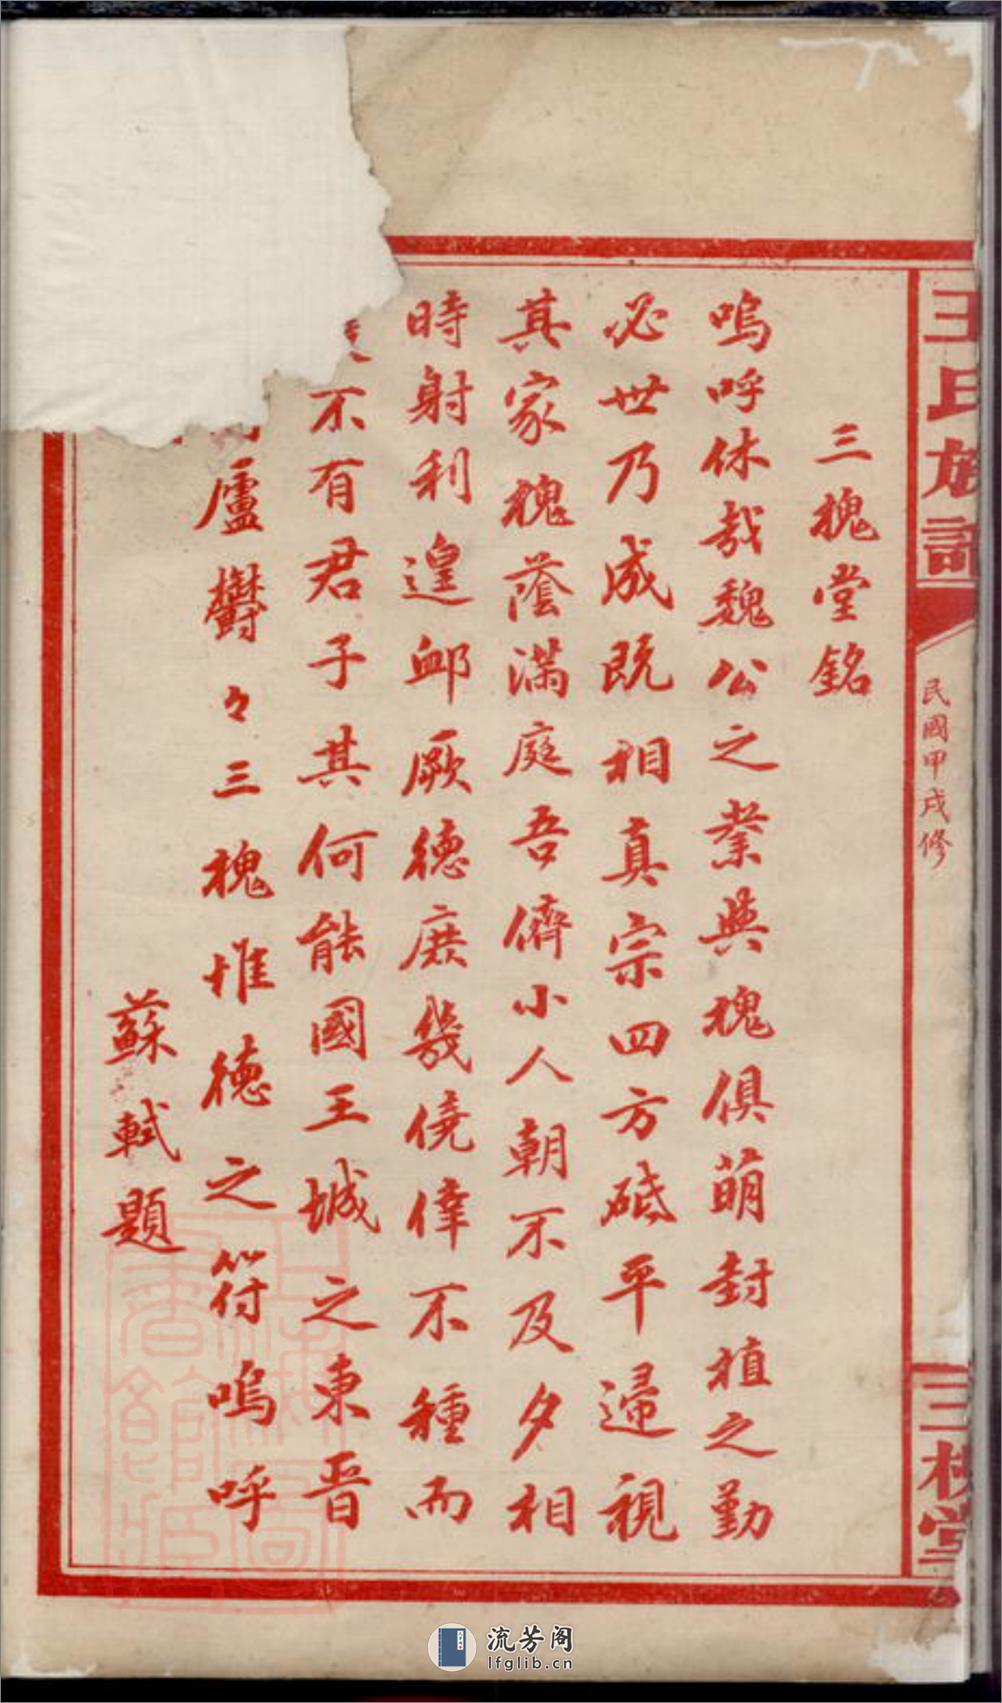 王氏族
民國甲戌修
三槐堂
三槐堂銘
嗚呼休哉魏公之業與槐俱萌封植之勤
必世乃成既相真宗四方砥平歸視
其家槐蔭滿庭吾儕小人朝不及夕相
時射利遑卹厥德庶幾僥倖不種而
不有君子其何能國王城之東晉
廬鬱々三槐惟德之符嗚呼
蘇軾題
流芳阁
lfglib.cn